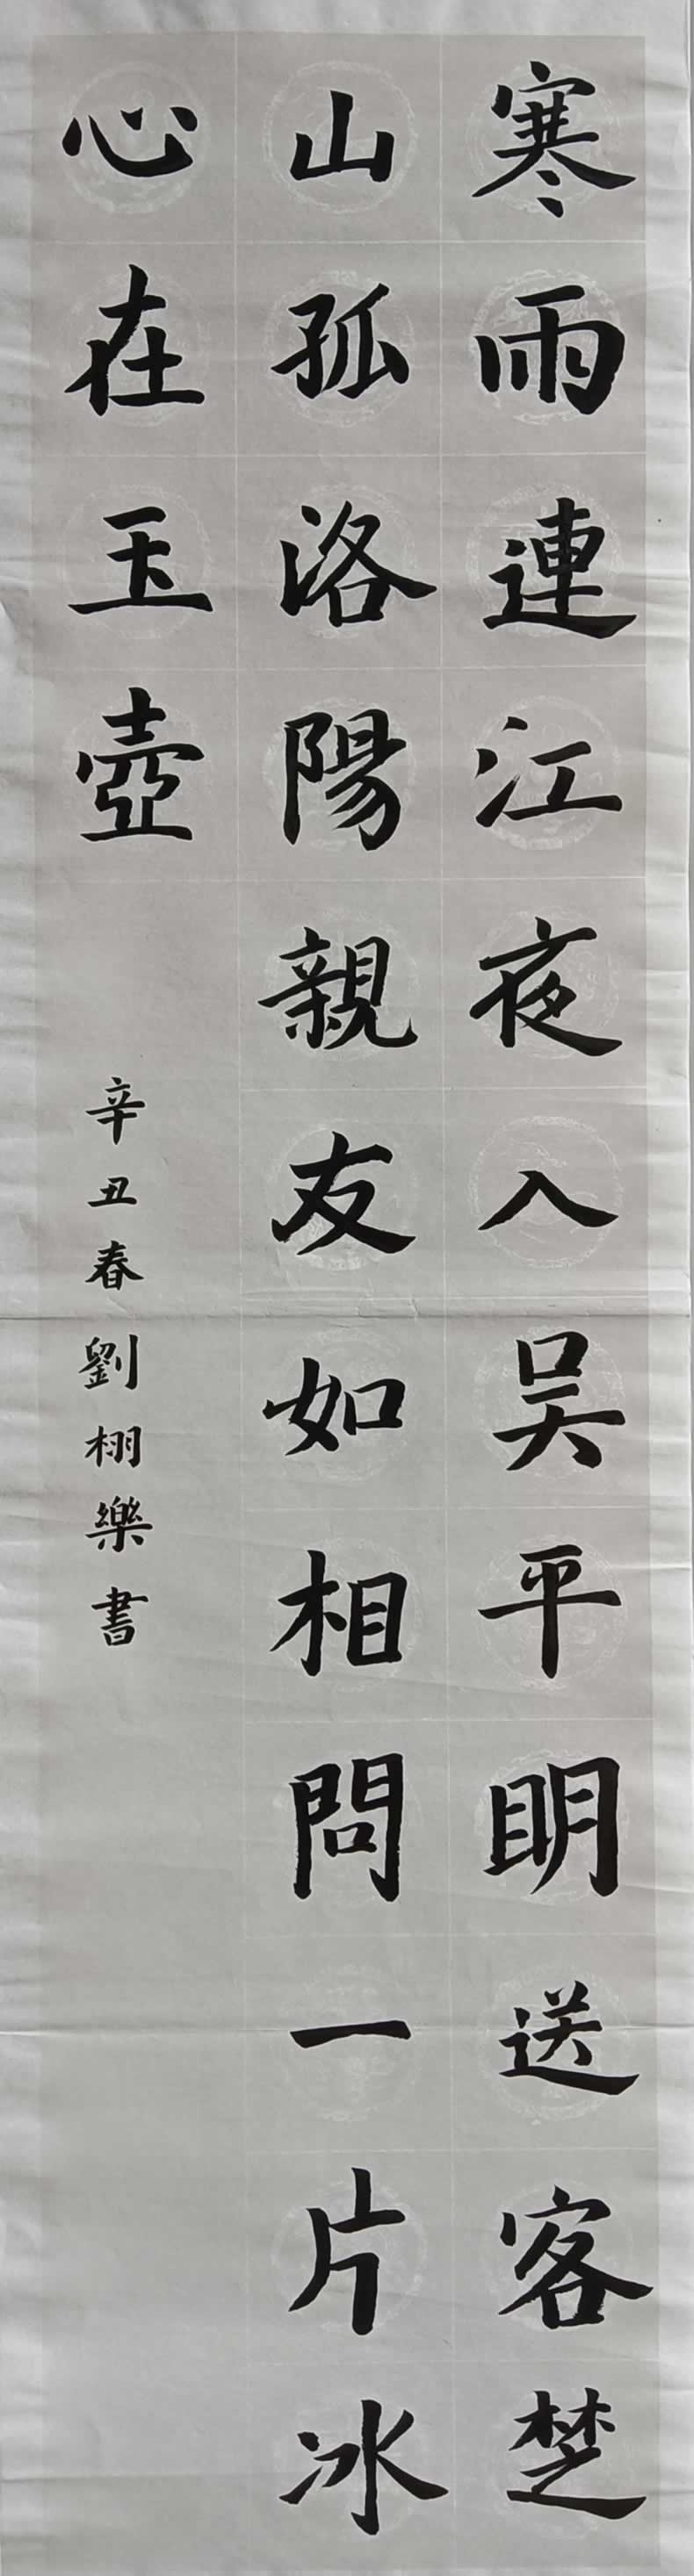 寒雨連江夜入吴平明送客楚
山孤洛陽親友如相問一片冰
心在玉壺
辛丑春劉栩樂書